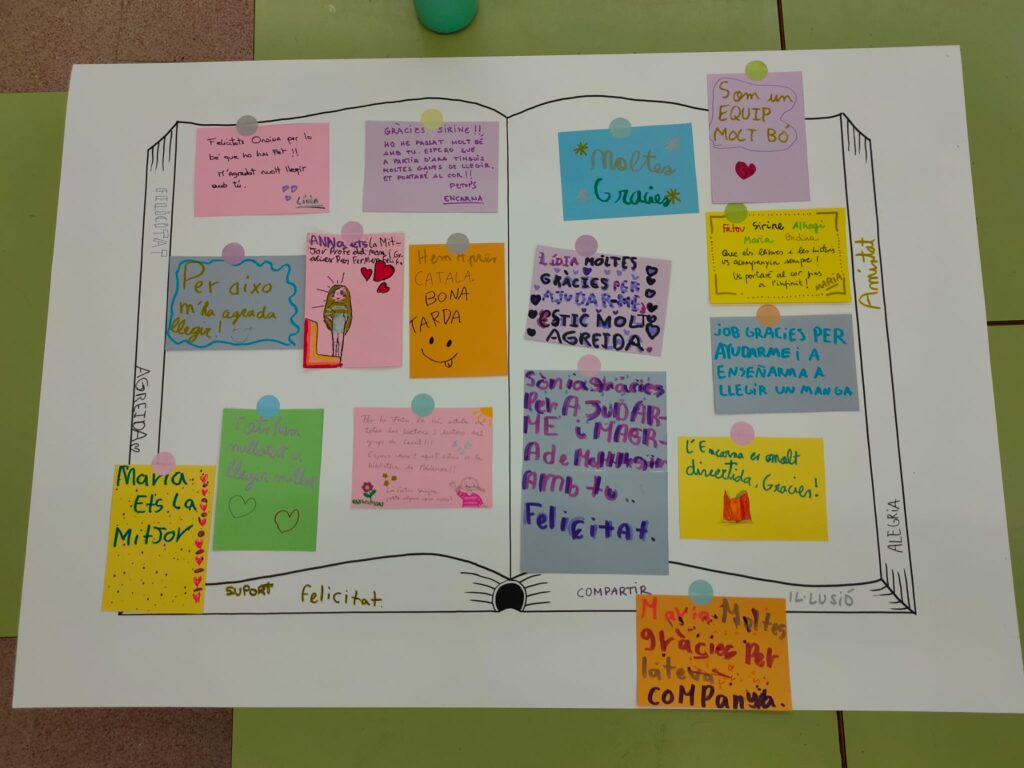 Felicitats Onaira per lo
bé que ho has fet !!
M'agradat molt llegir
amb tu.
Lídia
GRÀCIES SIRINE !!
HO HE PASSAT MOLT BÉ
AMB TU. ESPERO QUE
A PARTIR D'ARA TINGUIS
MOLTES GANES DE LLEGIR.
ET PORTARÉ AL COR !!
PETONS
ENCARNA
Per aixo
m'ha agrada
llegir!
ANNa ets la Mit-
Jor Profe del Mon / Gr
HemApres
CATALA.
BONA
TARDA
millorat a
llegir millor
Per la
totes les lectores i lectors del
grup de Lecxit!!!
biblioteca
MaRia
Ets La
MitJor
AGREIDA
SUPORT
Felicitat
Moltes
Gracies
Som un
EQUIP
MOLT BÓ
LíDIA MOLTES
GRÀCIES PER
AJUDAR-ME
ESTIC MOLT
AGREIDA.
Fatou Sirine Alhagi
Maria
Que els llibres i les lectures
us acompanyin sempre!
Us portaré al cor fins
a l'infinit!
MARIA
JOB GRACIES PER
AYUDARME i A
ENSEÑARMA A
LLEGIR UN MANGA
Sònia gràcies
Per AJUDAR-
ME i MAGR-
Ada Molt llegir
AMb tu..
FeLiCitAT.
L'Encarna es molt
divertida. Gracies!
Amintat
ALEGRIA
COMPARTIR
IL·LUSIÓ
Maria Moltes
gràcies Per
lateva
coMPanyia.